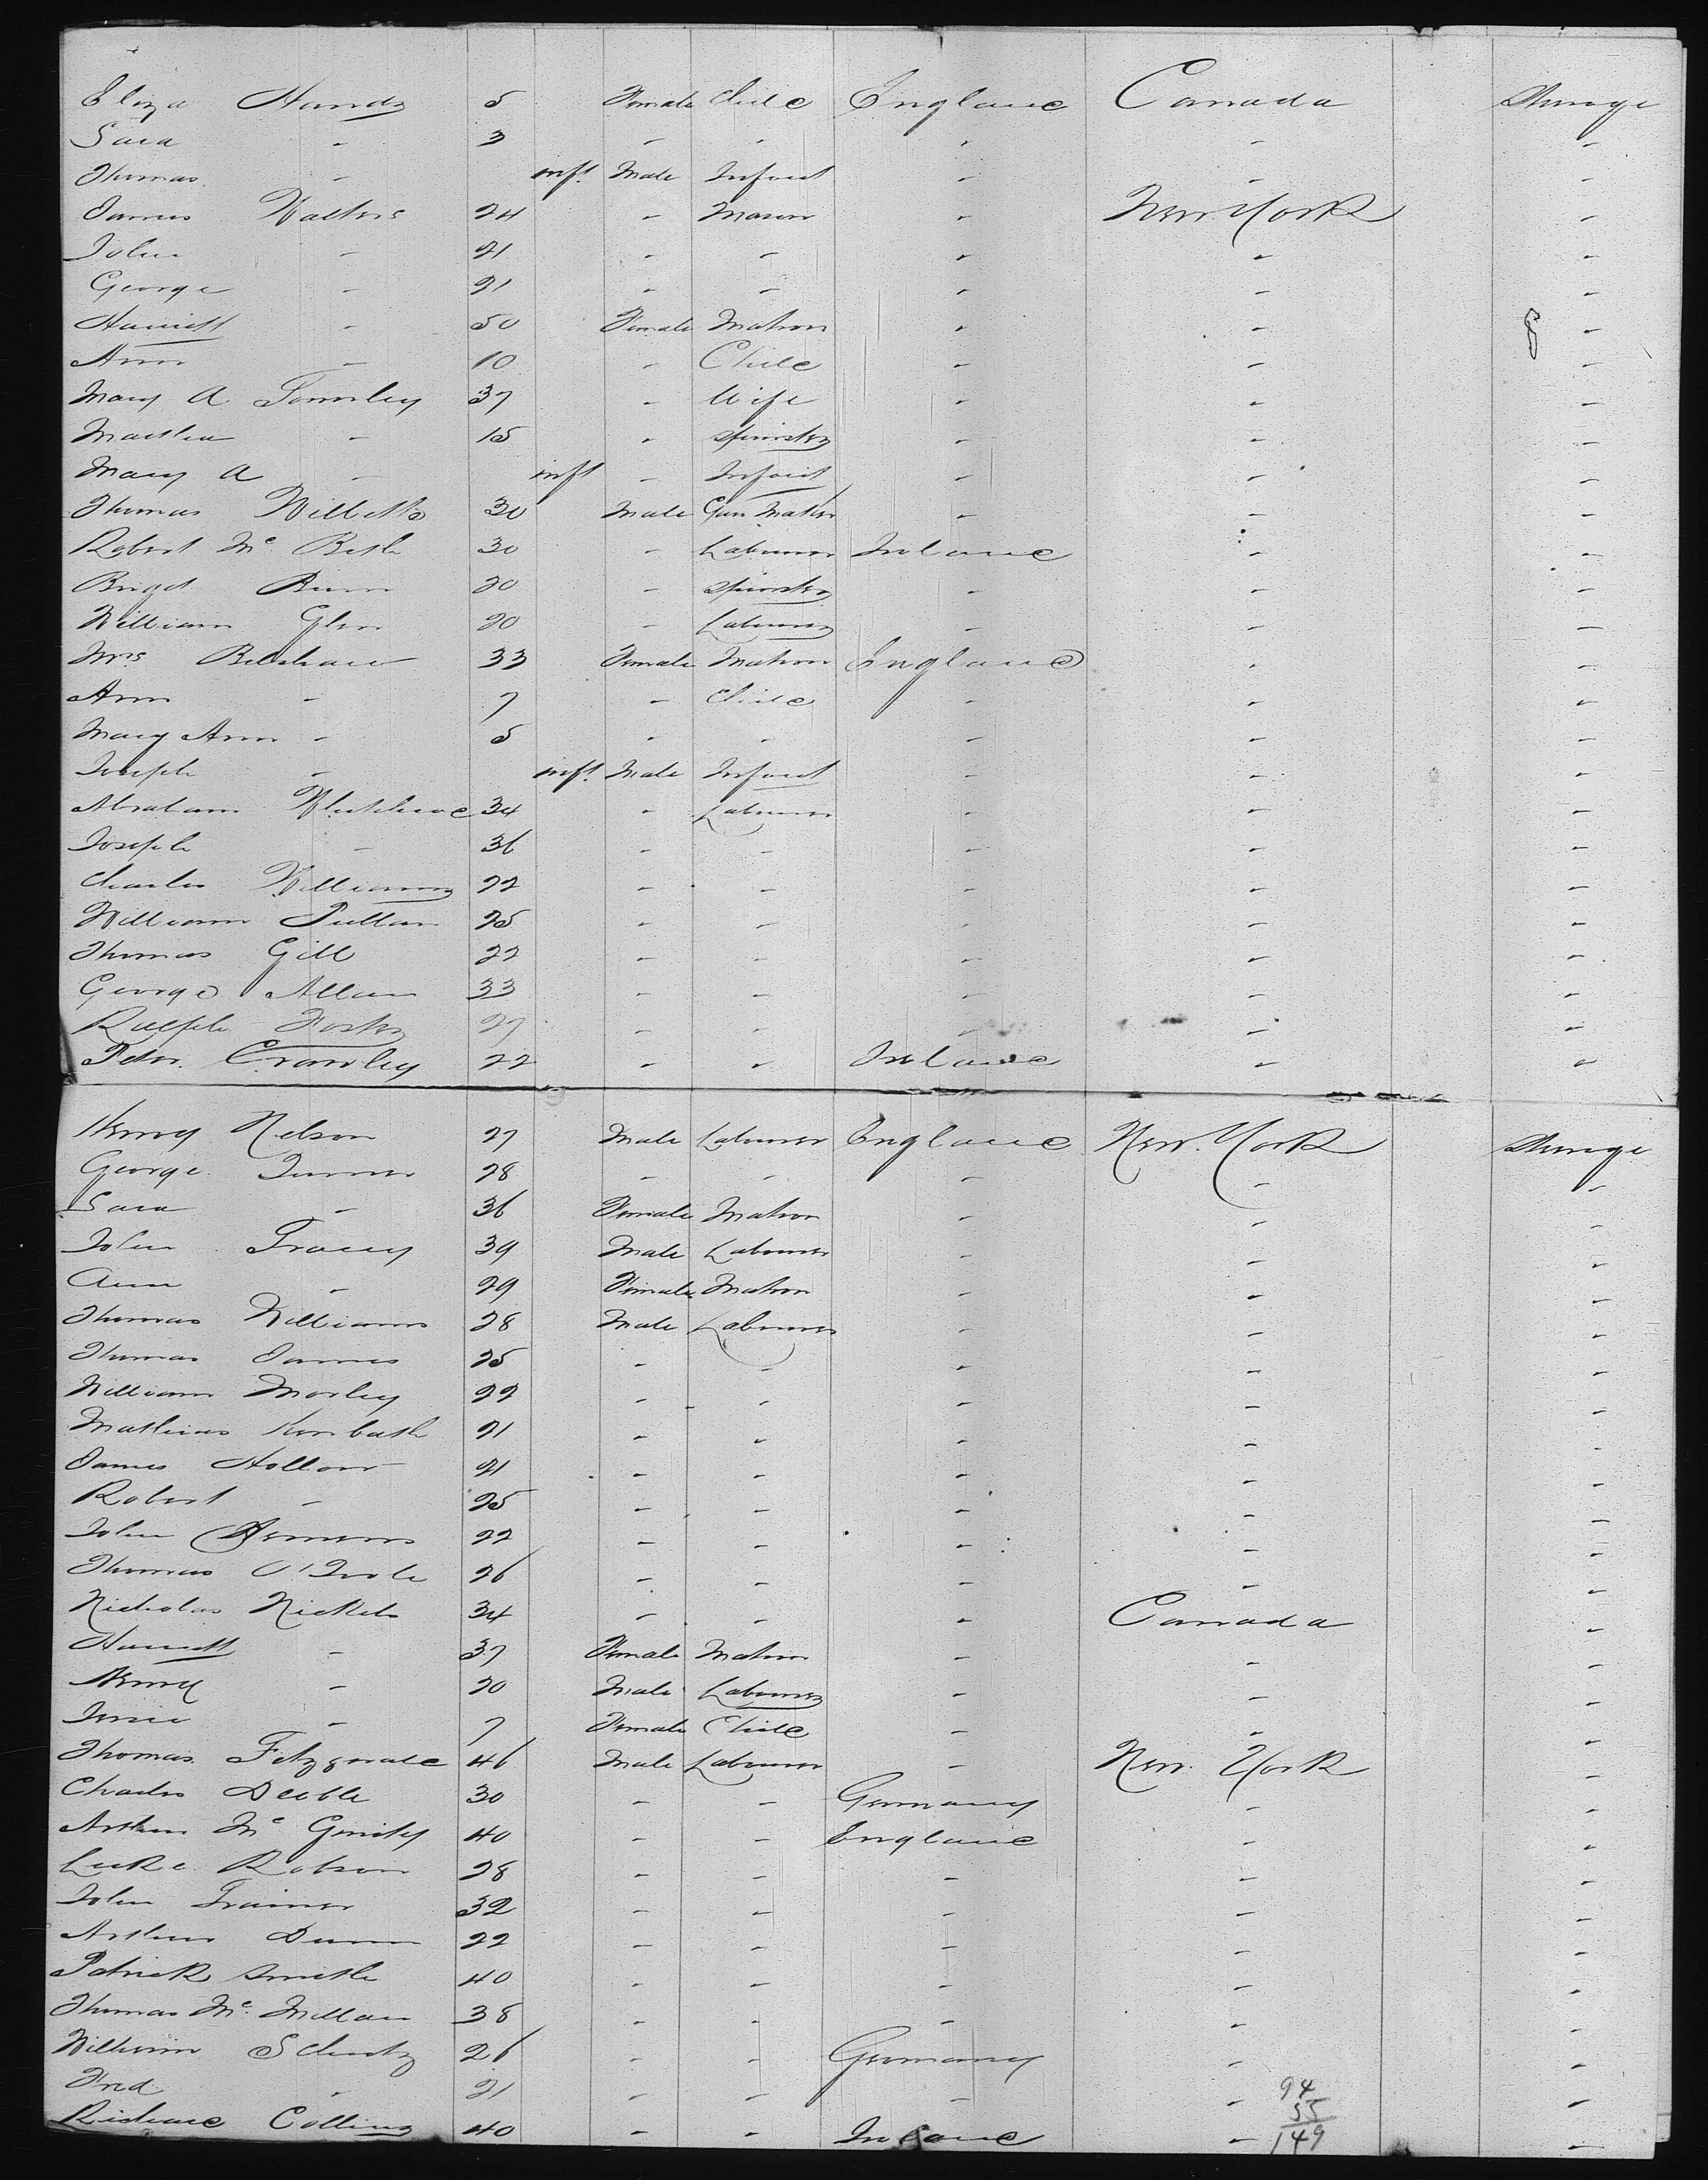 Eliza Hands 5 Female Child England Canada Steerage
Sara - 3 - - - - -
Thomas - inft. Male Infant - - -
James Walters 24 - Mason - New York -
John - 21 - - - - -
George - 21 - - - - -
Harriett - 50 Female Matron - - -
Ann - 10 - Child - - -
Mary A Townley 37 - Wife - - -
Martha - 15 - Spinster - - -
Mary A - inft - Infant - - -
Thomas Willetts 30 Male Gun Maker - - -
Robert Mc 30 - Labourer Ireland - -
Briget 20 - Spinster - - -
William Glen 20 - Labourer - - -
Mrs Belshaw 33 Female Matron England - -
Ann - 7 - Child - - -
Mary Ann - 5 - - - - -
Joseph - inft. Male Infant - - -
Abraham 34 - Labourer - - -
Joseph - 36 - - - - -
Charles Williams 22 - - - - -
William Pullan 25 - - - - -
Thomas Gill 22 - - - - -
George Allan 33 - - - - -
Ralph Foster 27 - - - - -
Peter Crawley 22 - - Ireland - -
Henry Nelson 27 Male Labourer England New York Steerage
George Turner 28 - - - - -
Sara - 36 Female Matron - - -
John Tracey 39 Male Labourer - - -
Ann - 29 Female Matron - - -
Thomas Williams 28 Male Labourer - - -
Thomas James 25 - - - - -
William Morley 22 - - - - -
Mathias 21 - - - - -
James Hollow 21 - - - - -
Robert - 25 - - - - -
John 22 - - - - -
Thomas O'Toole 26 - - - - -
Nicholas Nickels 34 - - - Canada -
Harriett - 37 Female Matron - - -
Henry - 20 Male Labourer - - -
- 7 Female Child - - -
Thomas Fitzgerald 46 Male Labourer - New York -
Charles Deoble 30 - - Germany - -
Arthur Mc 40 - - England - -
Luke Robson 28 - - - - -
John Trainer 32 - - - - -
Arthur Dunn 22 - - - - -
Patrick Smith 40 - - - - -
Thomas Mc Millan 38 - - - - -
Wilhelm Schultz 26 - - Germany - -
Fred - 21 - - - - -
94
55
Richard Collins 40 - - Ireland - -
149